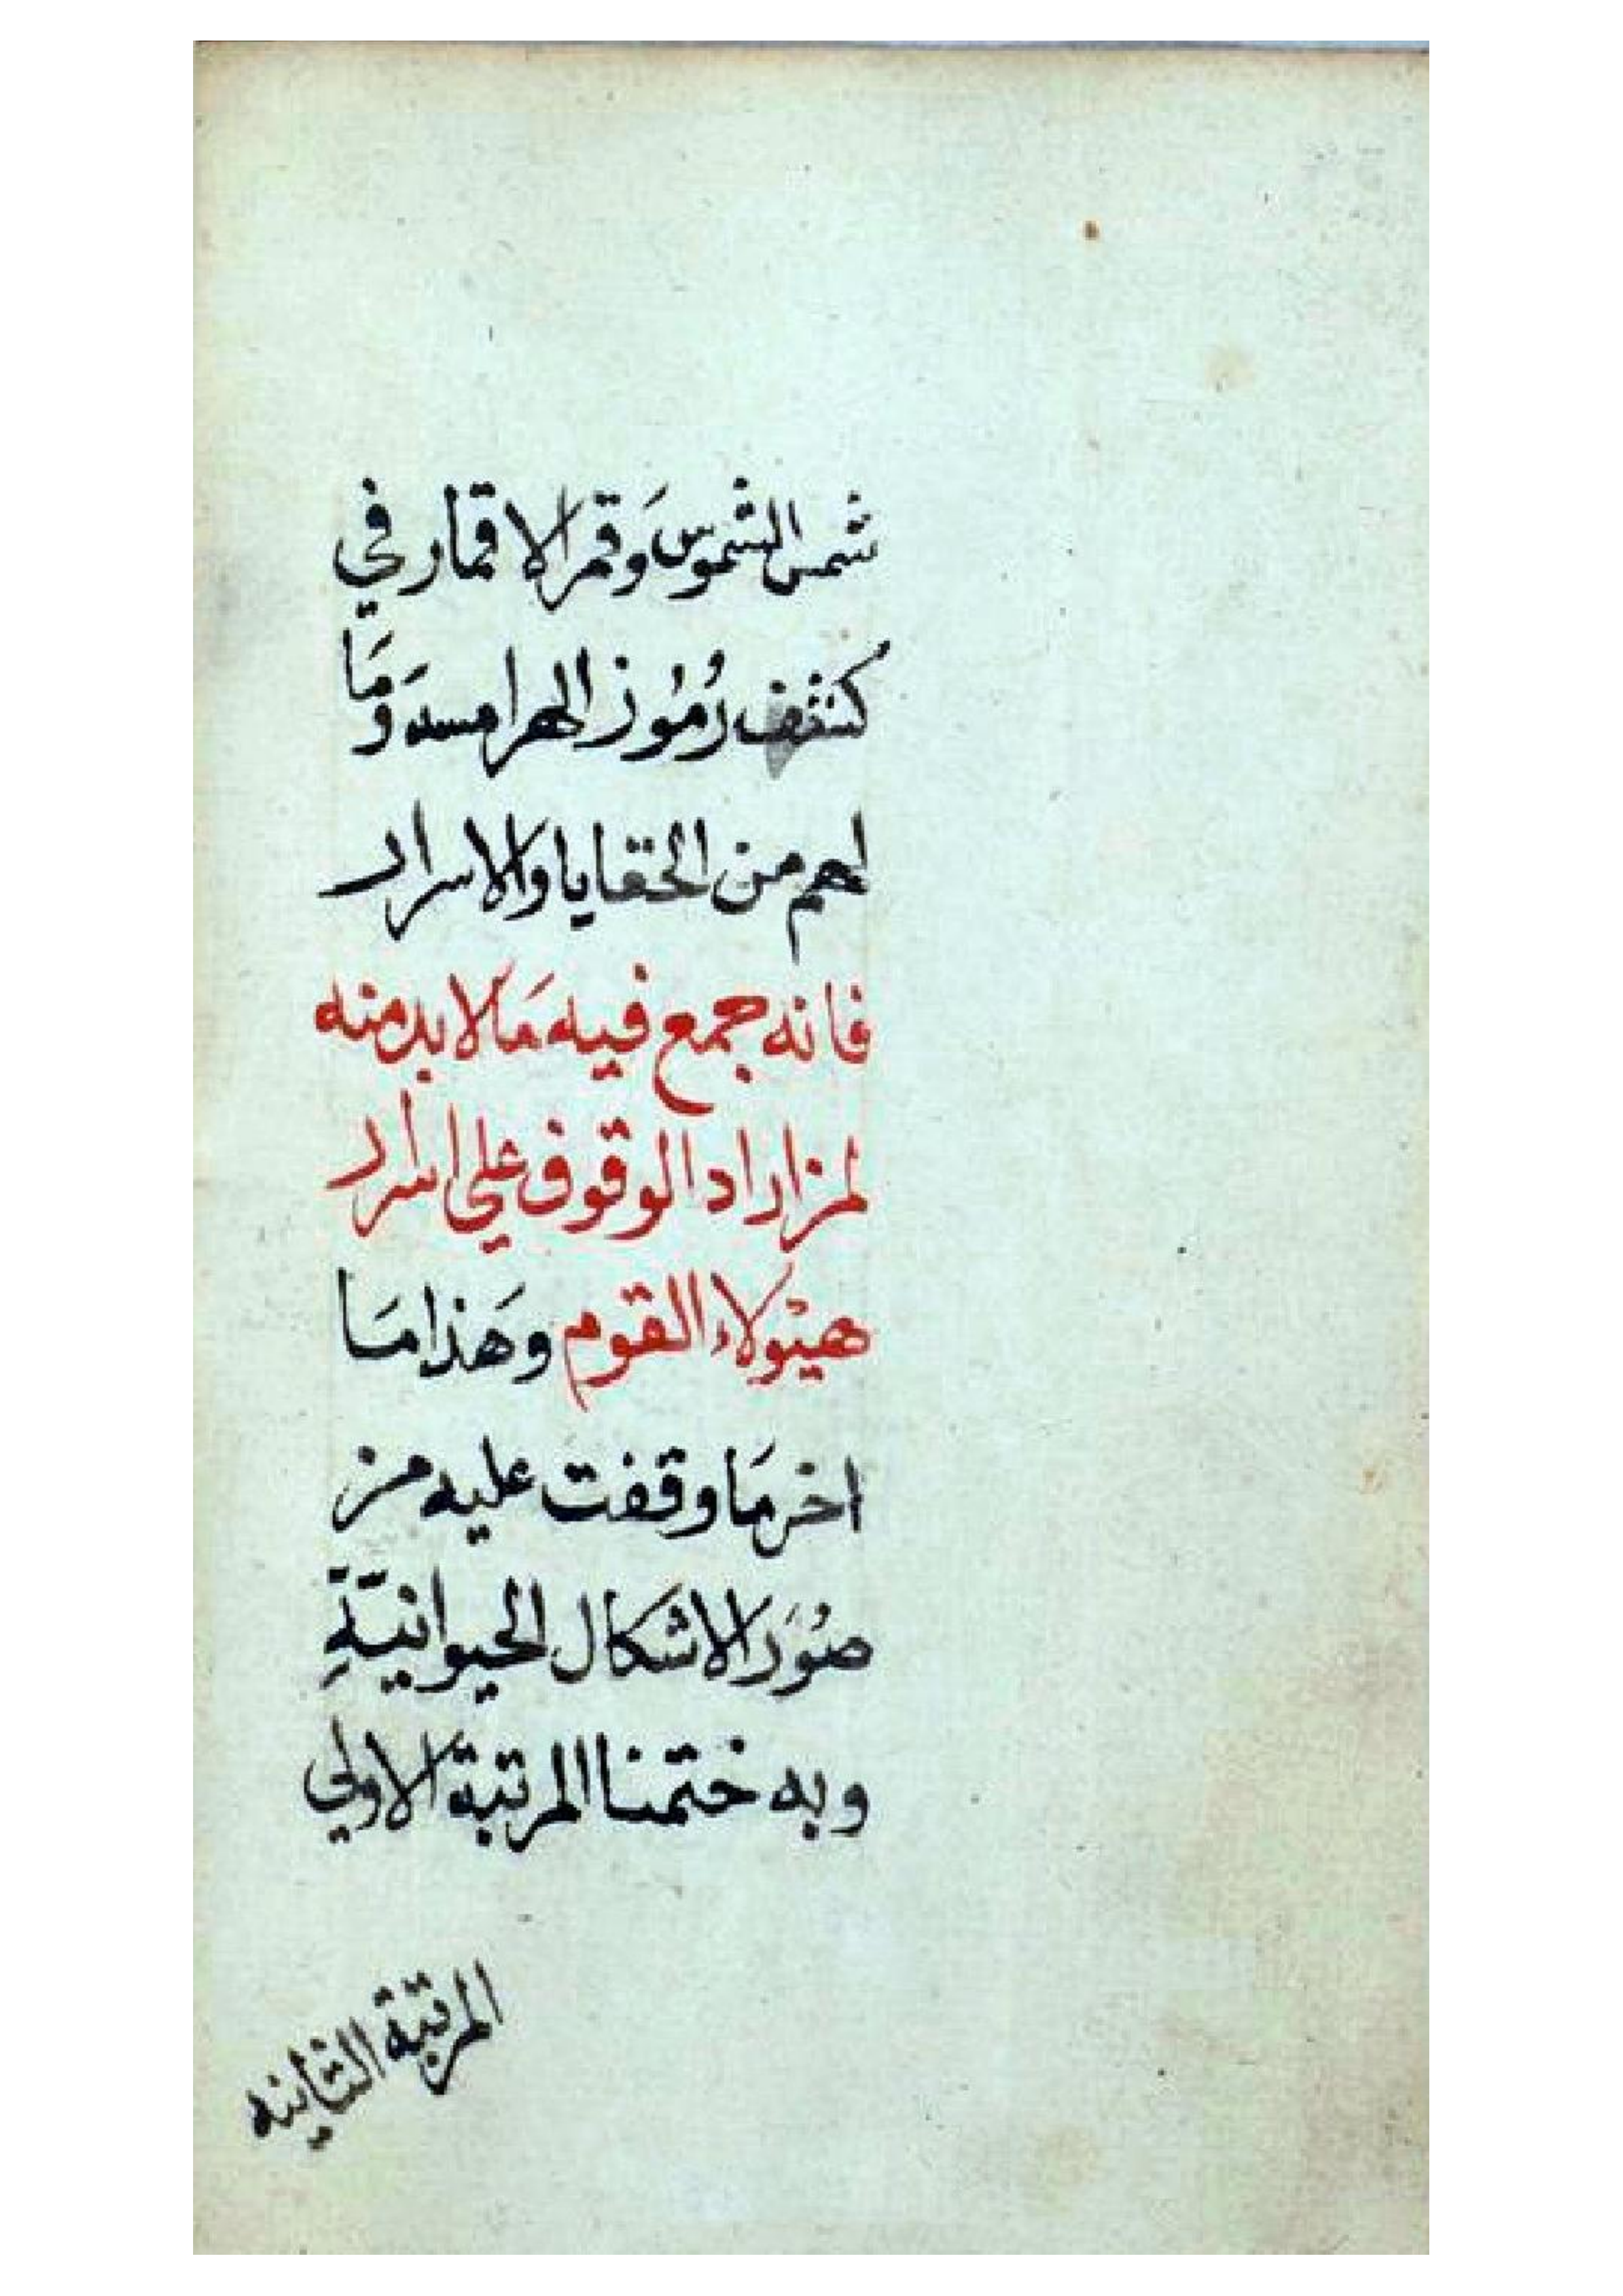 شمس الشموس وَقمر الاقمار في
كشف رُمُوز الهرامسه وَمَا
لهم من الخفايا والاسرار
فانه جمع فيه مَا لا بد منه
لمن اراد الوقوف علي اسرار
هيئولاء القوم وهَذا مَا
اخر مَا وقفت عليه من
صُوَر الاشكال الحيوانيّةِ
وبه ختمنا المرتبة الاولي
المرتبة الثانيه